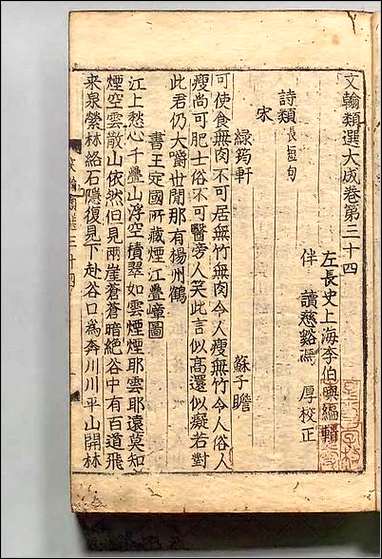 文翰類選大成卷第三十四
左長史上海李伯璵編輯
伴讀慈谿馮厚校正
詩類長短句
宋
綠筠軒 蘇子瞻
可使食無肉不可居無竹無肉令人瘦無竹令人俗人
瘦尚可肥士俗不可醫旁人笑此言似高還似癡若對
此君仍大嚼世間那有揚州鶴
書王定國所藏煙江疊嶂圖
江上愁心千疊山浮空積翠如雲煙煙耶雲耶遠莫知
煙空雲散山依然但見兩崖蒼蒼暗絕谷中有百道飛
来泉縈林絡石隱復見下赴谷口為奔川川平山開林